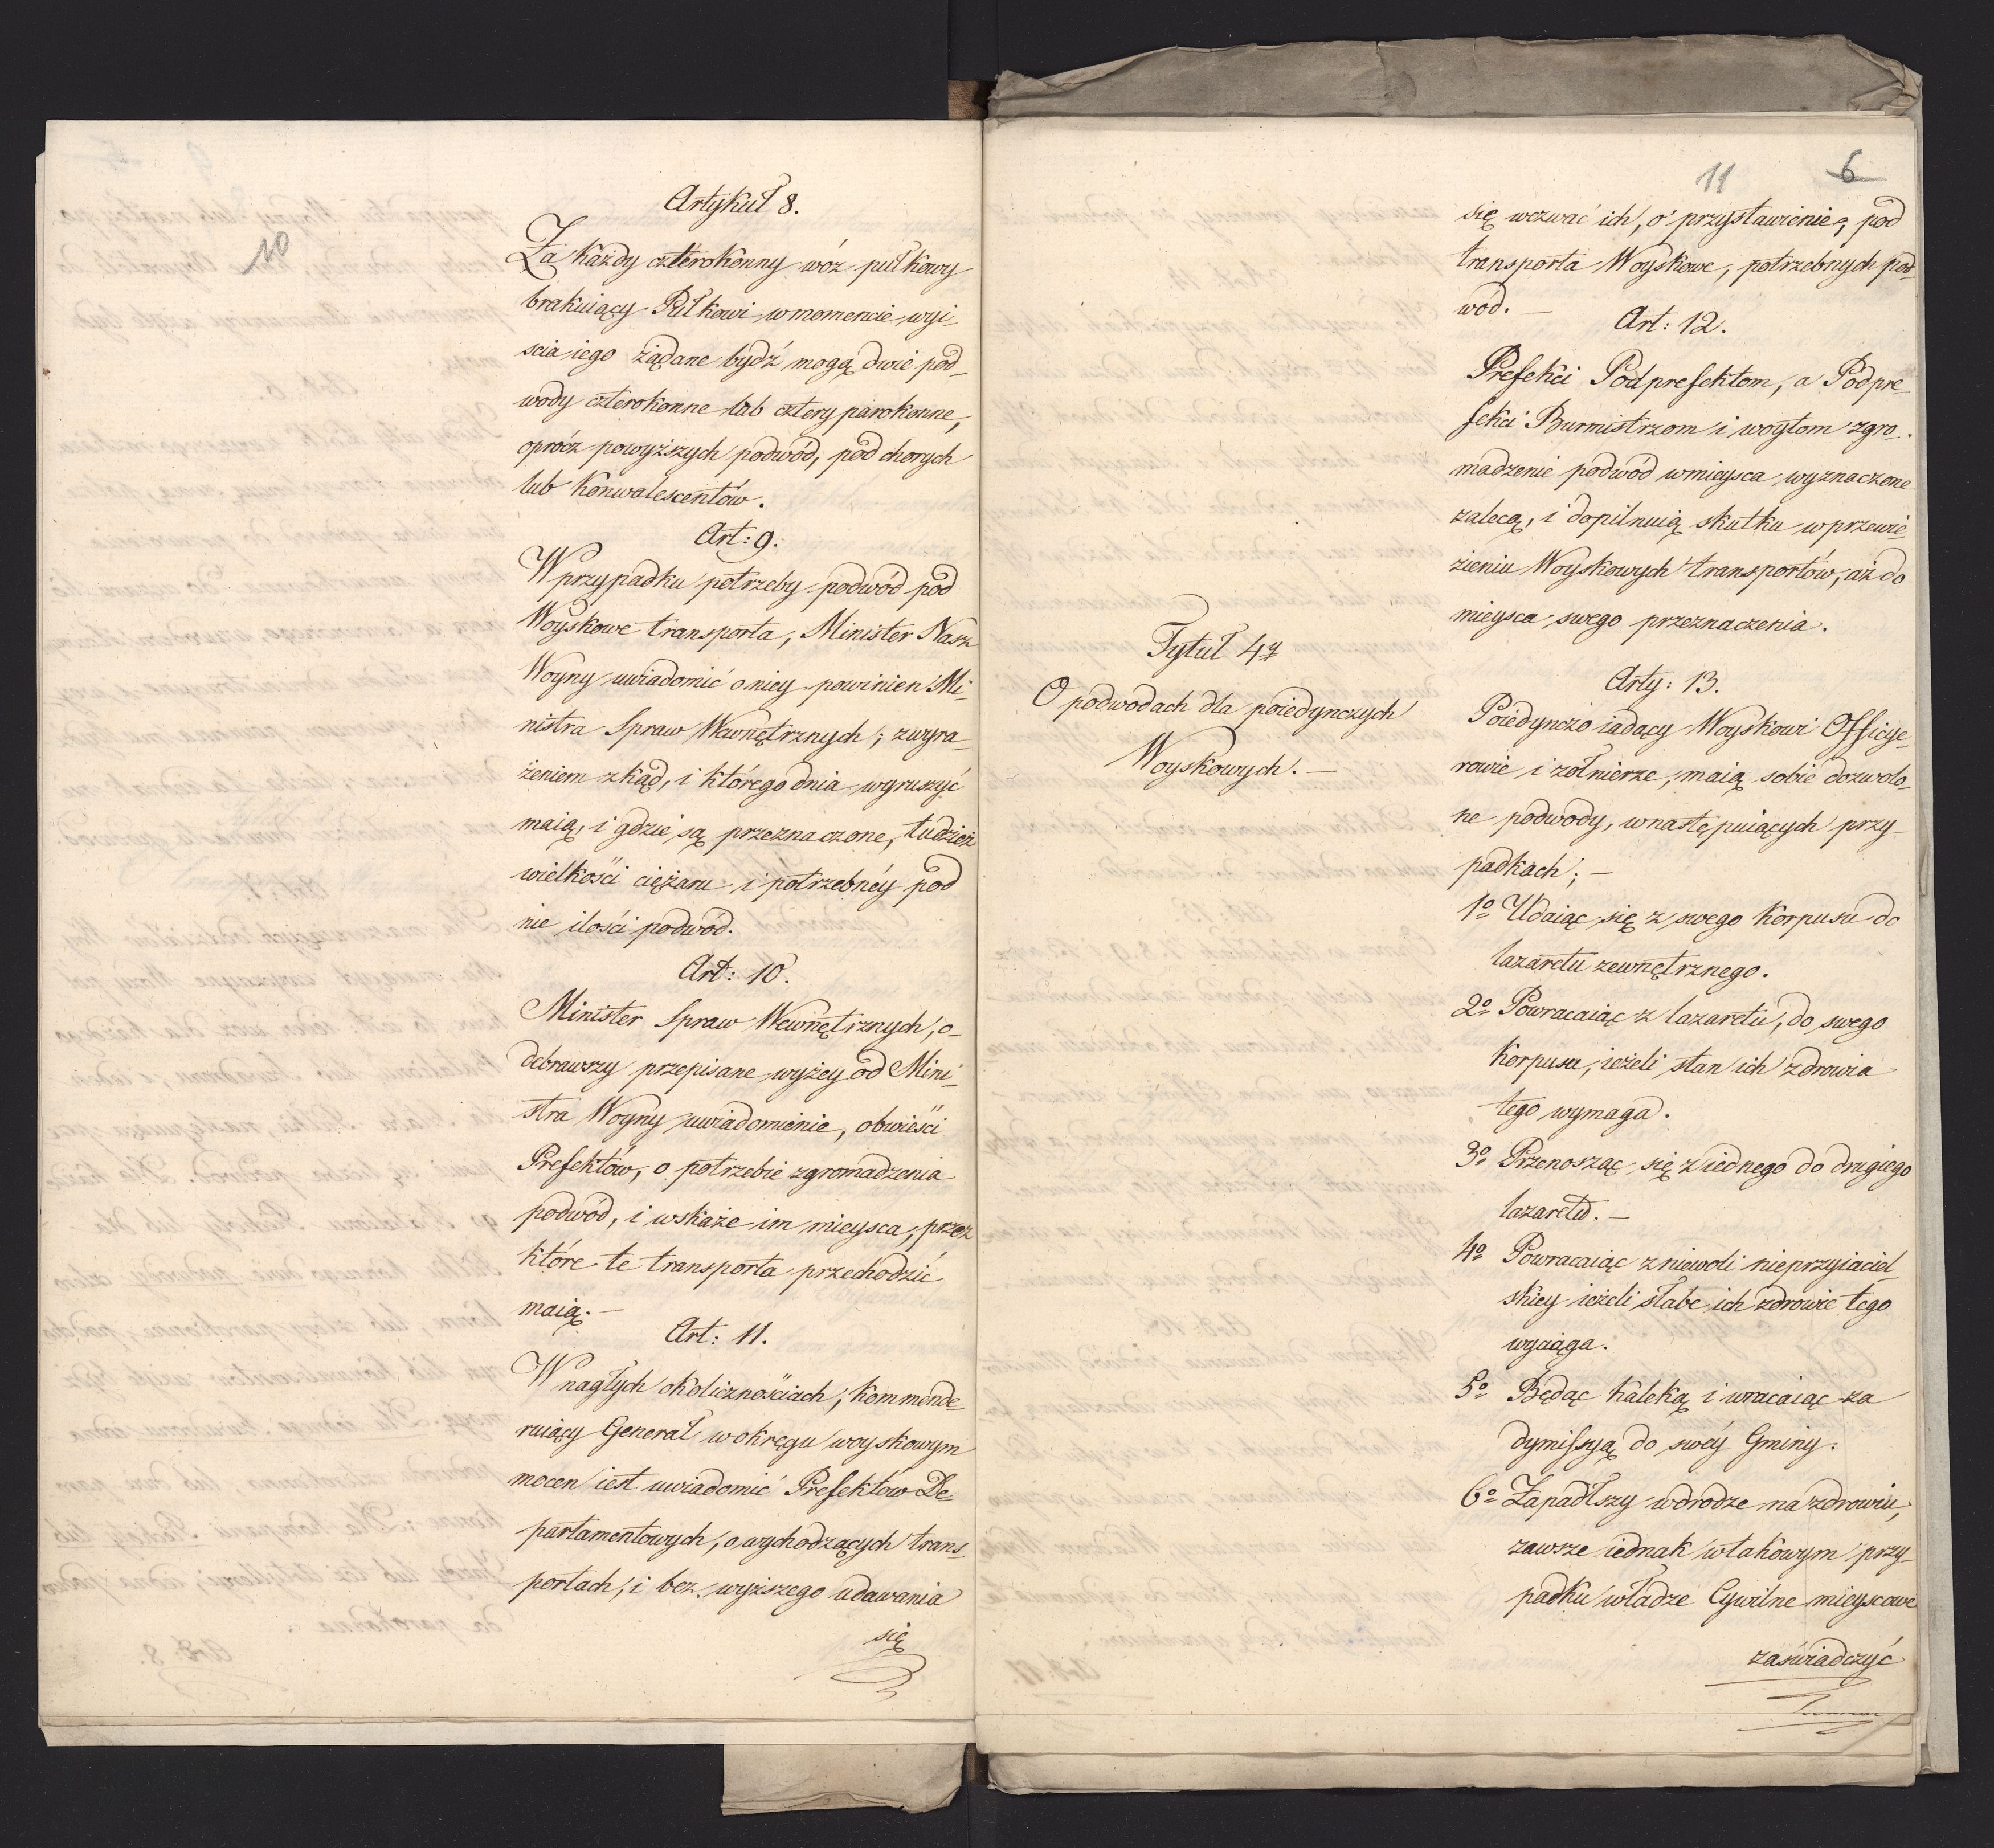 10
Artykuł 8.
Za każdy czterokonny wóz pułkowy
brakuiący Pułkowi w momencie wyi-
scia iego żądane bydź mogą dwie pod-
wody czterokonne lub cztery parokonne,
oprócz powyższych podwód, pod chorych
lub konwalescentów.
Art: 9.
W przypadku potrzeby podwód pod
Woyskowe transporta, Minister Nasz
Woyny uwiadomić o niey powinien Mi-
nistra Spraw Wewnętrznych; z wyra-
żeniem zkąd, i którego dnia wyruszyć
maią, i gdzie są przeznaczone, tudzież
wielkości ciężaru i potrzebnéy pod
nie ilości podwód.
Art: 10.
Minister Spraw Wewnętrznych, o-
debrawszy przepisane wyżey od Mini-
stra Woyny uwiadomienie, obwieści
Prefektów, o potrzebie zgromadzenia
podwód, i wskaże im mieysca, przez
które te transporta przechodzić
maią. —
Art: 11.
W nagłych okolicznościach, kommende-
ruiący Generał w okręgu woyskowym
mocen iest uwiadomić Prefektów De-
partamentowych, o wychodzących trans-
portach, i bez wyższego udawania
się
11 6
się wezwać ich, o przystawienie, pod
transporta Woyskowe, potrzebnych pod-
wód. —
Art: 12.
Prefekci Podprefektom, a Podpre-
fekci Burmistrzom i woytom zgro-
madzenie podwód w mieysca wyznaczone
zalecą, i dopilnuią skutku w przewie
zieniu Woyskowych transportów, aż do
mieysca swego przeznaczenia.
Tytuł 4y
O podwodach dla poiedynczych
Woyskowych. —
Arty: 13.
Poiedynczo iadący Woyskowi Officye-
rowie i żołnierze, maią sobie dozwolo-
ne podwody, w następuiących przy-
padkach; —
1o Udaiąc się z swego korpusu do
lazaretu zewnętrznego.
2o Powracaiąc z lazaretu, do swego
korpusu, ieżeli stan ich zdrowia
tego wymaga.
3o Przenosząc się z iednego do drugiego
lazaretu. —
4o Powracaiąc z niewoli nieprzyiaciel-
skiey ieżeli słabe ich zdrowie tego
wyciąga.
5o Będąc kaleką i wracaiąc za
dymissyą do swéy Gminy:
6o Zapadłszy w drodze na zdrowiu,
zawsze iednak w takowym przy-
padku władze Cywilne mieyscowe
zaświadczyć